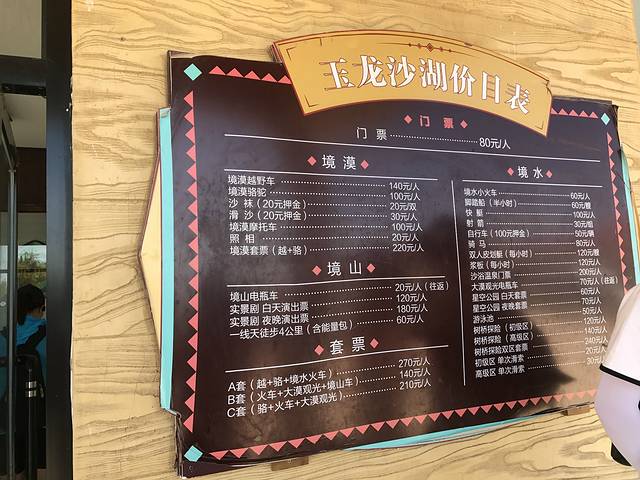 玉龙沙湖价目表
门票
门票 80元/人
境漠
境漠越野车 140元/人
境漠骆驼 100元/人
沙袜（20元押金） 20元/双
滑沙（20元押金） 30元/人
境漠摩托车 100元/人
照相 20元/人
境漠套票（越+骆） 220元/人
境山
境山电瓶车 20元/人（往返）
实景剧 白天演出票 120元/人
实景剧 夜晚演出票 180元/人
一线天徒步4公里（含能量包） 60元/人
套票
A套（越+骆+境水火车） 270元/人
B套（火车+大漠观光+境山车） 140元/人
C套（骆+火车+大漠观光） 210元/人
境水
境水小火车 60元/人
脚踏船（半小时） 60元/艘
快艇 100元/人
射箭 30元/组
自行车（100元押金） 50元/辆
骑马 80元/人
双人皮划艇（每小时） 120元/艘
浆板（每小时） 120元/人
沙浴温泉门票 200元/人
大漠观光电瓶车 70元/人（往返）
星空公园 白天套票 60元/人
星空公园 夜晚套票 70元/人
游泳池 50元/人
树桥探险（初级区） 120元/人
树桥探险（高级区） 140元/人
树桥探险双区套票 240元/人
初级区 单次滑索 20元/人
高级区 单次滑索 30元/